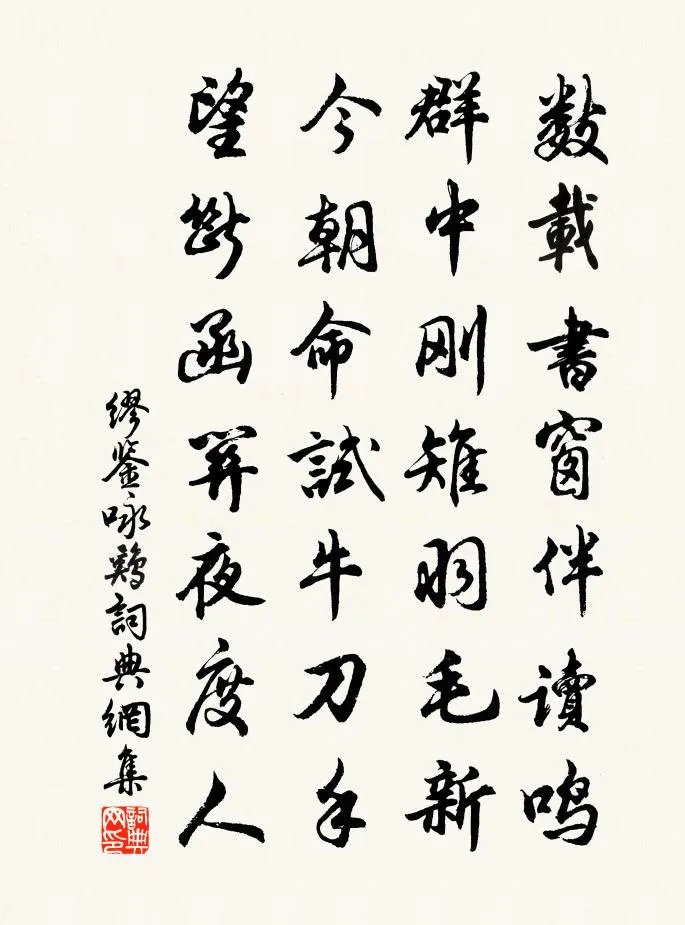 數載書窗伴讀鳴
群中剛雉羽毛新
今朝命試牛刀手
望斷函關夜度人
繆鑒咏鷄詞典網集
詞典网印